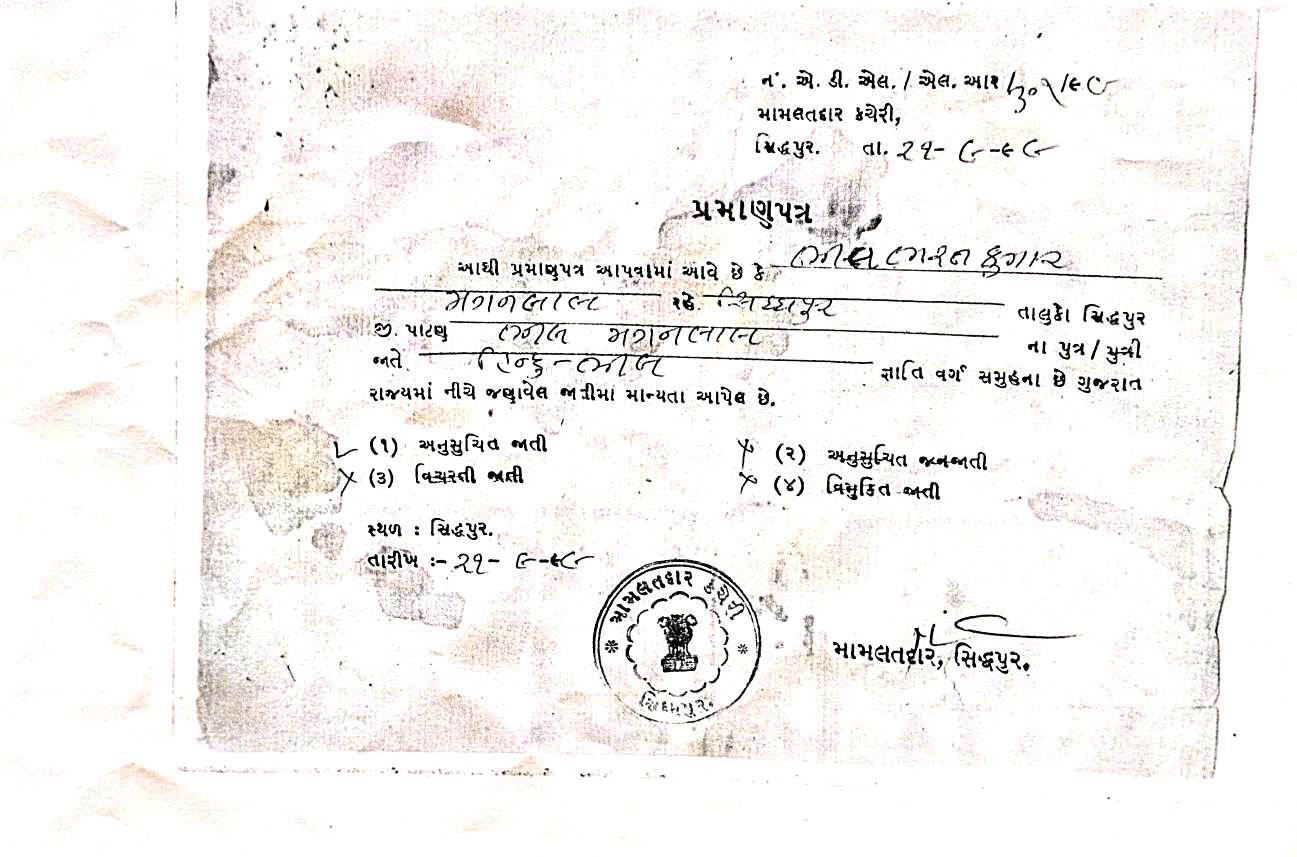 નં. એ. ડી. એલ. / એલ. આર /૬૦૧/૯૯
મામલતદાર કચેરી,
સિદ્ધપુર. તા. ૨૧- ૯ -૯૯
પ્રમાણપત્ર
આથી પ્રમાણપત્ર આપવામાં આવે છે કે ભીલ ભરતકુમાર
મગનલાલ રહે. સિધ્ધપુર તાલુકો સિદ્ધપુર
જી. પાટણ ભીલ મગનલાલ ના પુત્ર / પુત્રી
જાતે હિન્દુ-ભીલ જ્ઞાતિ વર્ગ સમુહના છે ગુજરાત
રાજ્યમાં નીચે જણાવેલ જાતીમાં માન્યતા આપેલ છે.
✓ (૧) અનુસુચિત જાતી × (૨) અનુસુચિત જનજાતી
× (૩) વિચરતી જાતી × (૪) વિમુકિત જાતી
સ્થળ : સિદ્ધપુર.
તારીખ :- ૨૧- ૯ -૯૯
મામલતદાર કચેરી
સિધ્ધપુર.
મામલતદાર, સિદ્ધપુર.